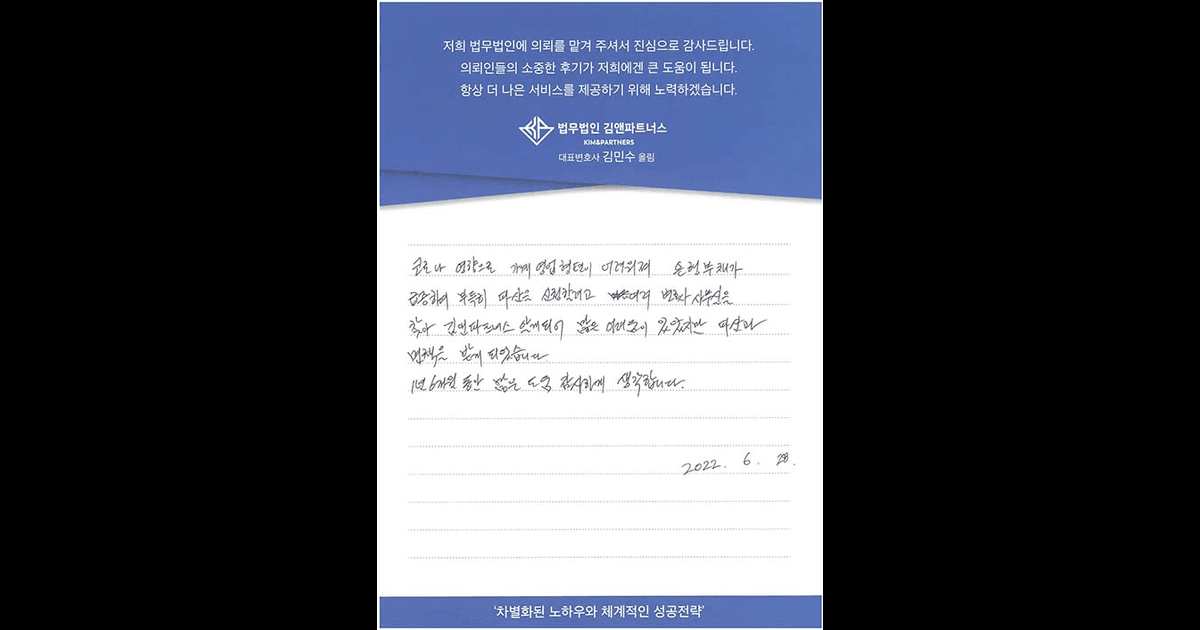 저희 법무법인에 의뢰를 맡겨 주셔서 진심으로 감사드립니다.
의뢰인들의 소중한 후기가 저희에겐 큰 도움이 됩니다.
항상 더 나은 서비스를 제공하기 위해 노력하겠습니다.
법무법인 김앤파트너스
KIM&PARTNERS
대표변호사 김민수 올림
코로나 영향으로 가게 영업형편이 어려워져 은행부채가
급증하여 부득히 파산을 신청할려고 여러 변호사 사무실을
찾아 김앤파트너스 알게되어 많은 어려움이 있었지만 파산과
면책을 받게 되었습니다
1년 6개월 동안 많은 도움 감사하게 생각합니다.
2022. 6. 28.
'차별화된 노하우와 체계적인 성공전략'